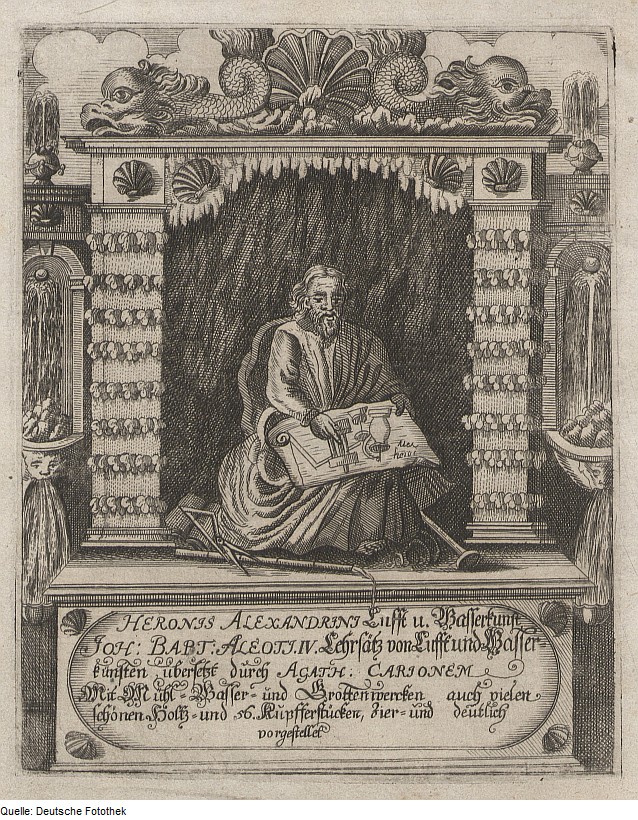 Alex
heron
HERONIS ALEXANDRINI Lufft u. Wasserkunst,
JOH: BAPT: ALEOTI. IV. Lehrsätz von Lufft und Wasser
künsten übersetzt durch AGATH: CARIONEM
Mit Mühl- Wasser- und Grottenwercken auch vielen
schönen Holtz- und 56. Kupfferstücken, zier- und deutlich
vorgestellet
Quelle: Deutsche Fotothek